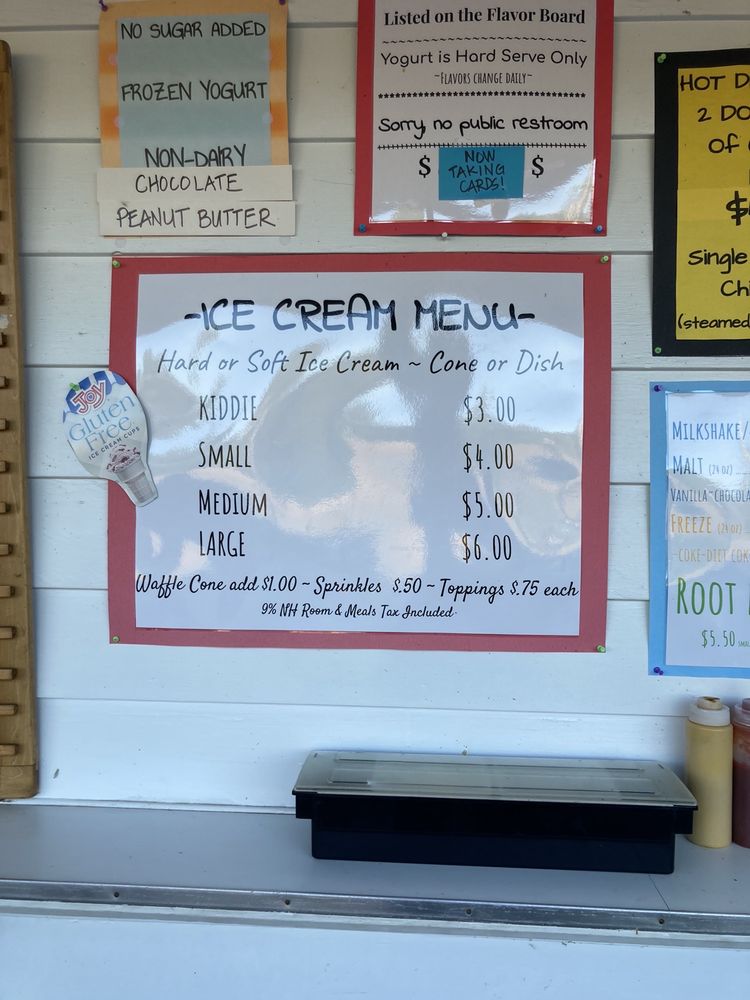 NO SUGAR ADDED
FROZEN YOGURT
NON-DAIRY
CHOCOLATE
PEANUT BUTTER
Listed on the Flavor Board
Yogurt is Hard Serve Only
~Flavors change daily~
Sorry, no public restroom
$ NOW TAKING CARDS! $
-ICE CREAM MENU-
Hard or Soft Ice Cream ~ Cone or Dish
KIDDIE $3.00
SMALL $4.00
MEDIUM $5.00
LARGE $6.00
Waffle Cone add $1.00 ~ Sprinkles $.50 ~ Toppings $.75 each
9% NH Room & Meals Tax Included
JOY
Gluten
Free
ICE CREAM CUPS
HOT D
2 DO
Of
$
Single
Chi
(steamed
MILKSHAKE/
MALT (24 oz)
VANILLA~CHOCOLA
FREEZE (24 oz)
~COKE-DIET COK
ROOT
$5.50